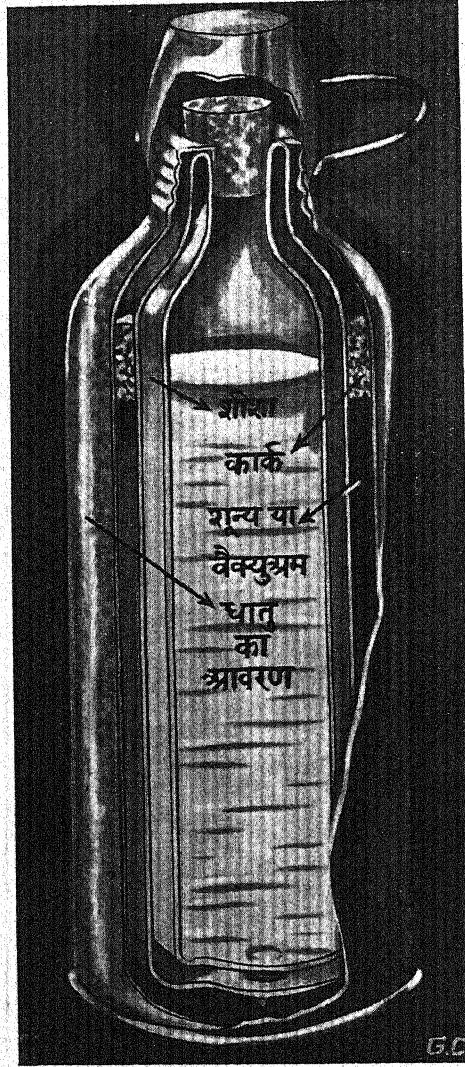 शीशा
कार्क
शून्य या
वैक्युअम
धातु
का
आवरण
G.C